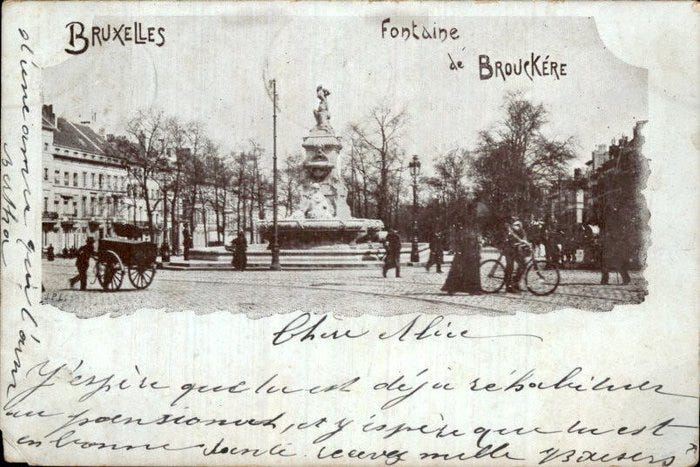 BRUXELLES
Fontaine
dé BROUCKÉRE
Chere Alice
J'espère que tu est déjà réhabituer
au pensionnat, et j'espère que tu est
en bonne santé recevez mille Baisers
d'une amie qui t'aime